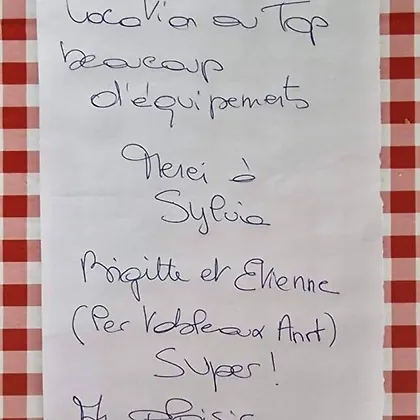 Location au Top
beaucoup
d'équipements
Merci à
Sylvia
Brigitte et Etienne
(Les tableaux Anrt)
Super!
plaisir